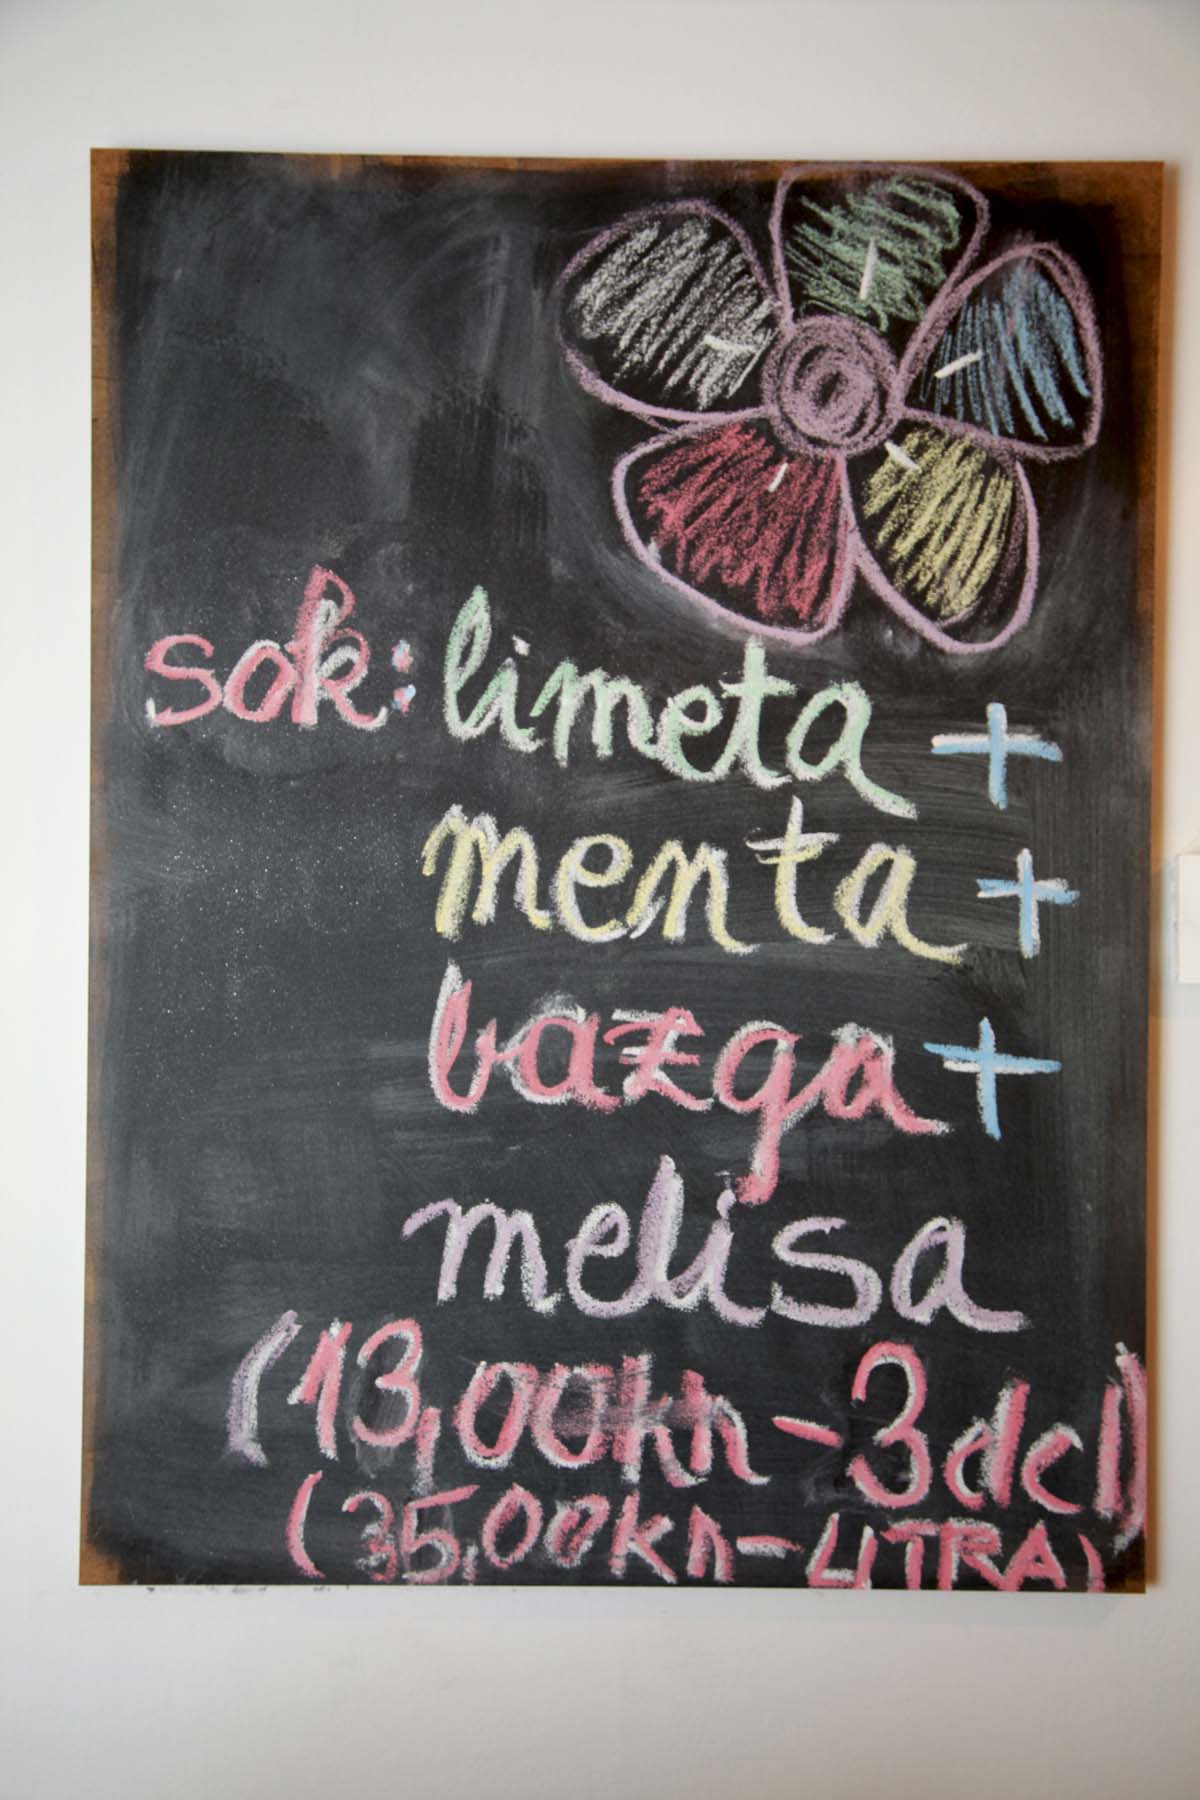 sok: limeta +
menta +
bazga +
melisa
(13,00kn - 3dcl)
(35,00kn - LITRA)